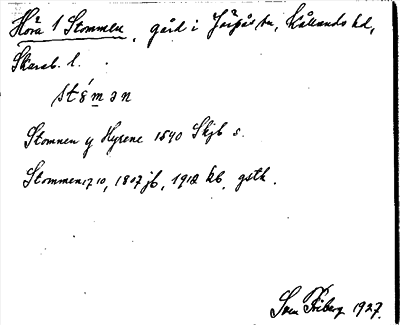 Höra 1 Stommen, gård i Järpås sn, Kållands hd,
Skarab. l.
stómən
Stomnen y Hyrene 1540 Skjb s.
Stommen 1710, 1807 jb, 1912 kb, gsth.
Sven Friberg 1927.